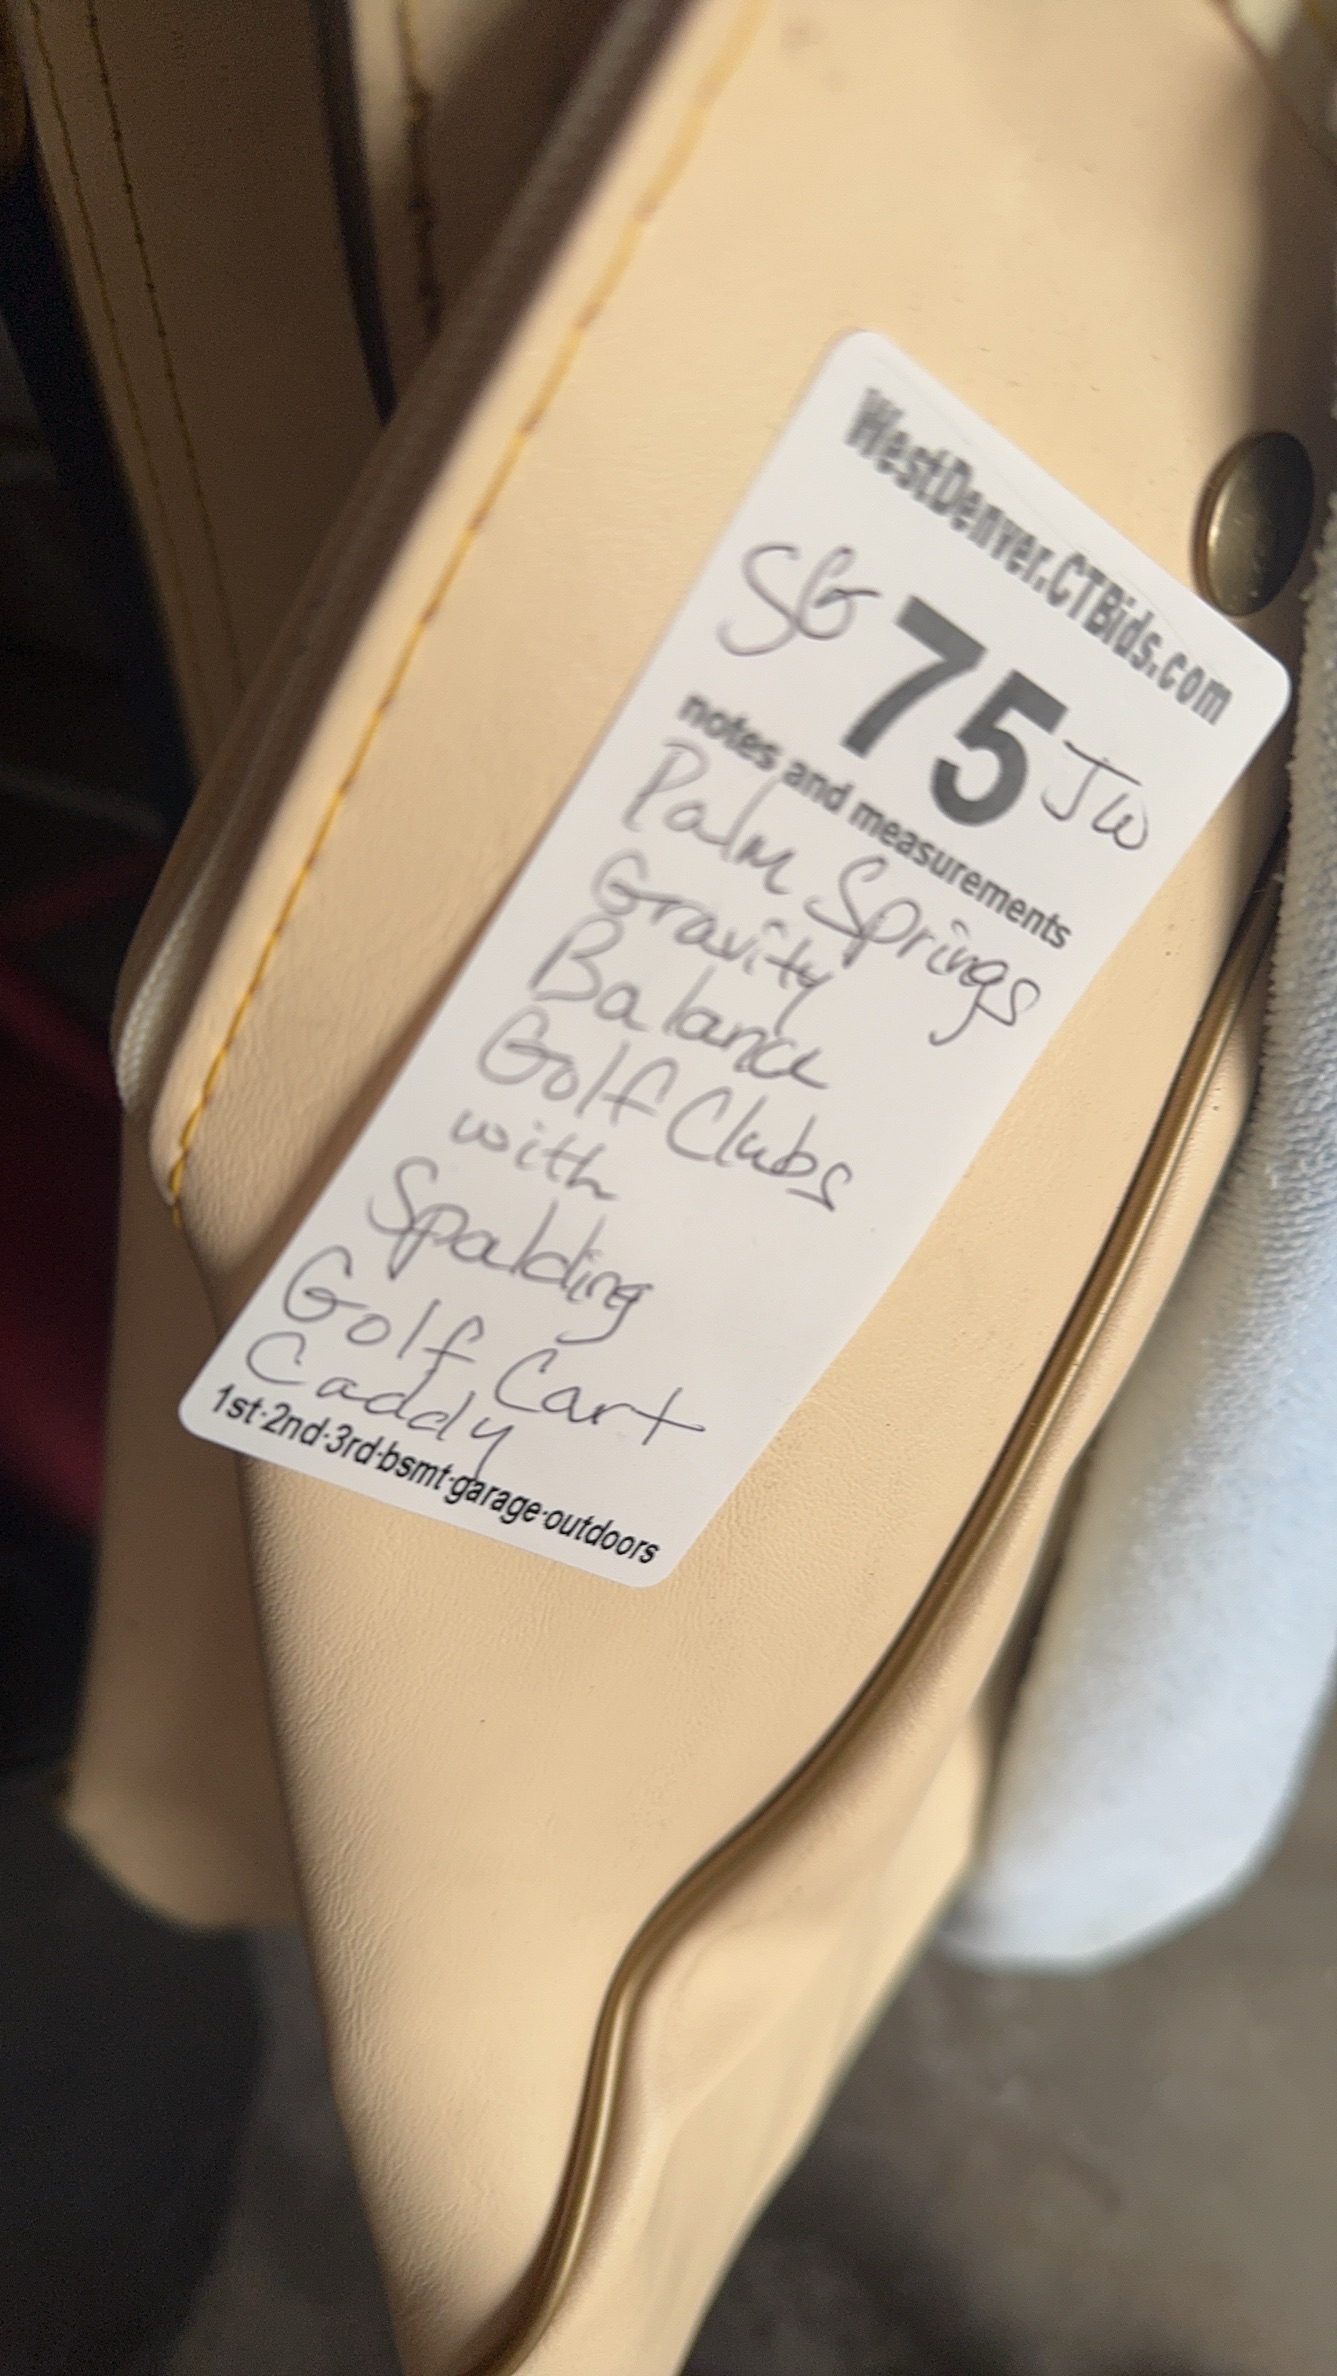 WestDenver.CTBids.com
SG 75 JW
notes and measurements
Palm Springs
Gravity
Balance
Golf Clubs
with
Spalding
Golf Cart
Caddy
1st·2nd·3rd·bsmt·garage·outdoors